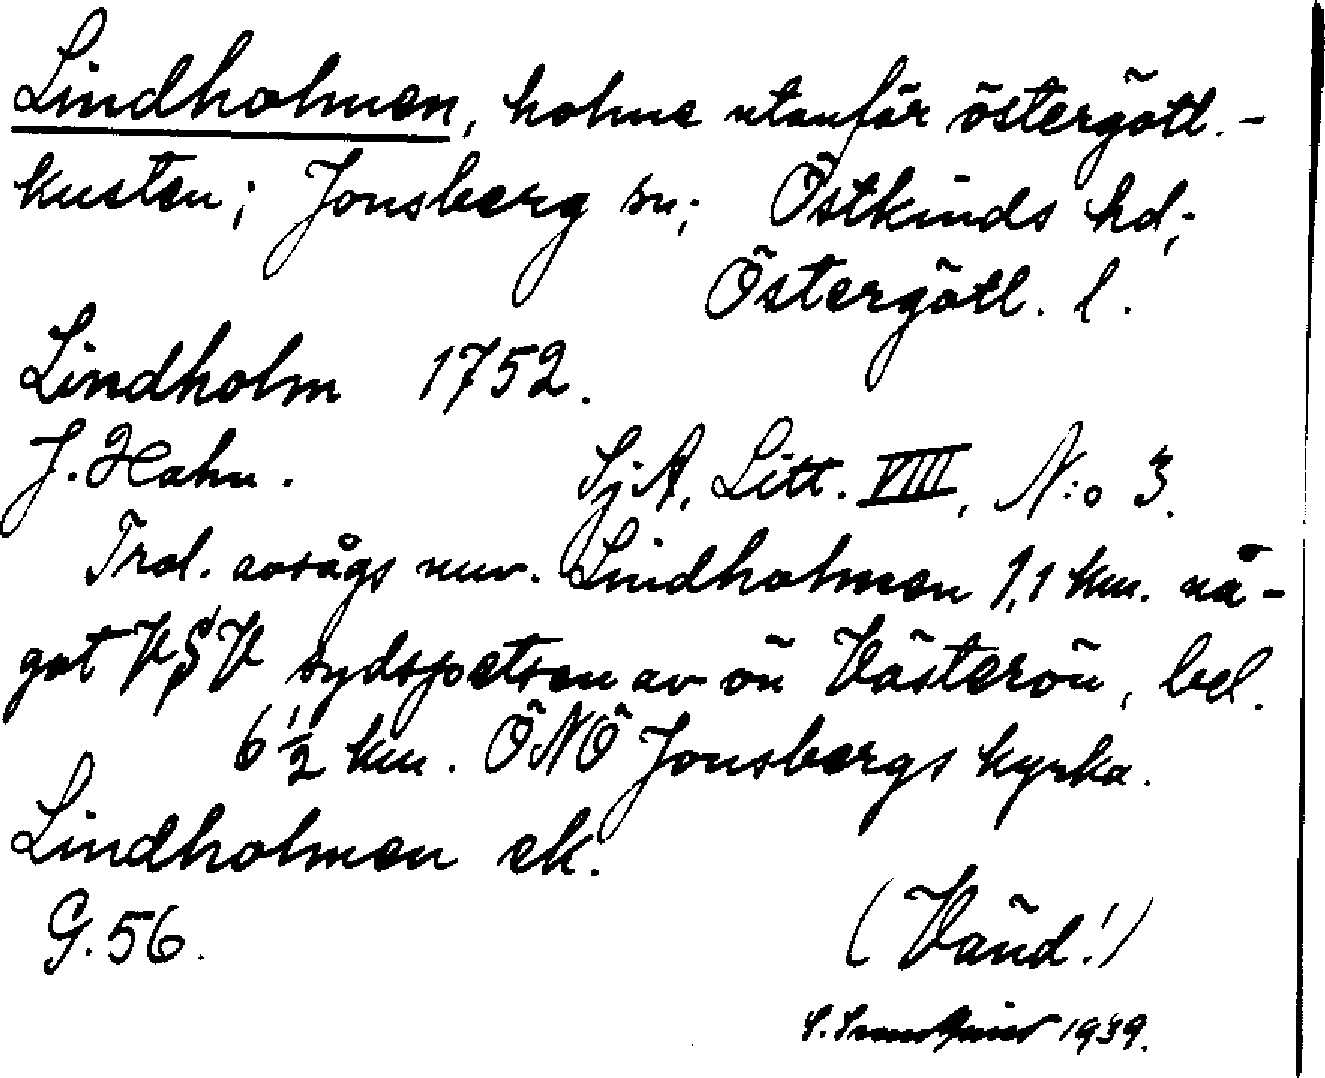 Lindholmen, holme utanför östergötl.-
kusten; Jonsberg sn; Östkinds hd;
Östergötl. l.
Lindholm 1752.
J. Hahn. SjA, Litt. VIII, N:o 3.
Trol. avsågs nuv. Lindholmen 1,1 km. nå-
got VSV sydspetsen av ön Västerön, bel.
6 1/2 km. ÖNÖ Jonsbergs kyrka.
Lindholmen ek.
G. 56.
(Vänd!)
1939.